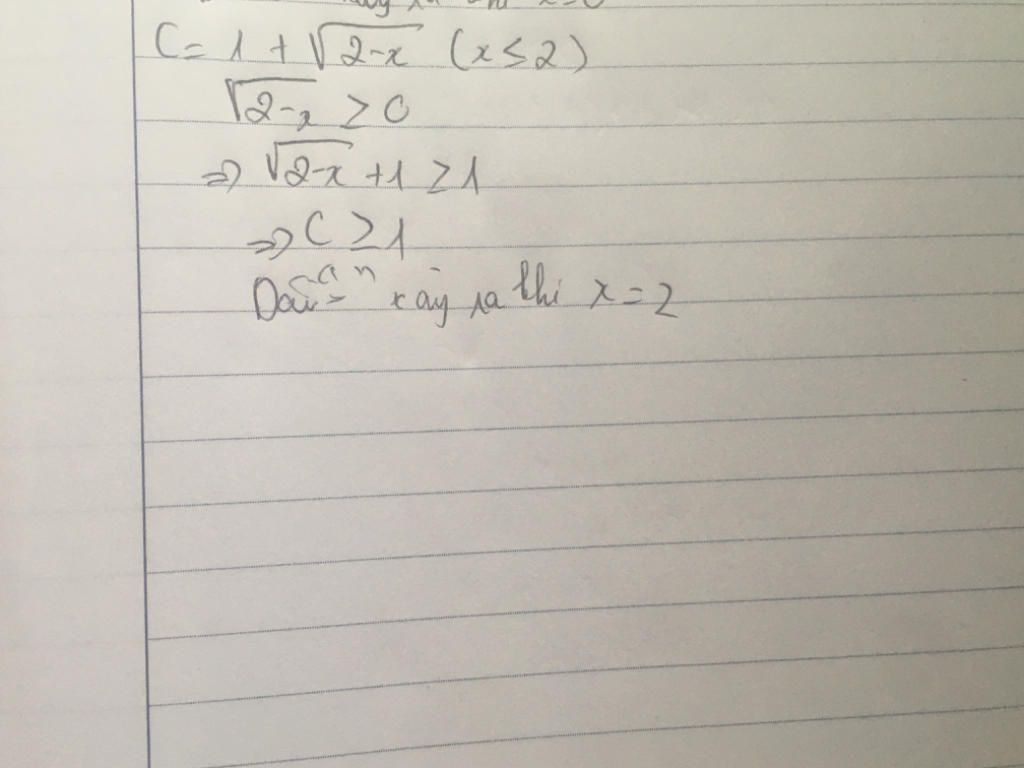 C = 1 + √(2-x) (x ≤ 2)
√(2-x) ≥ 0
⇒ √(2-x) + 1 ≥ 1
⇒ C ≥ 1
Dấu "=" xảy ra khi x = 2